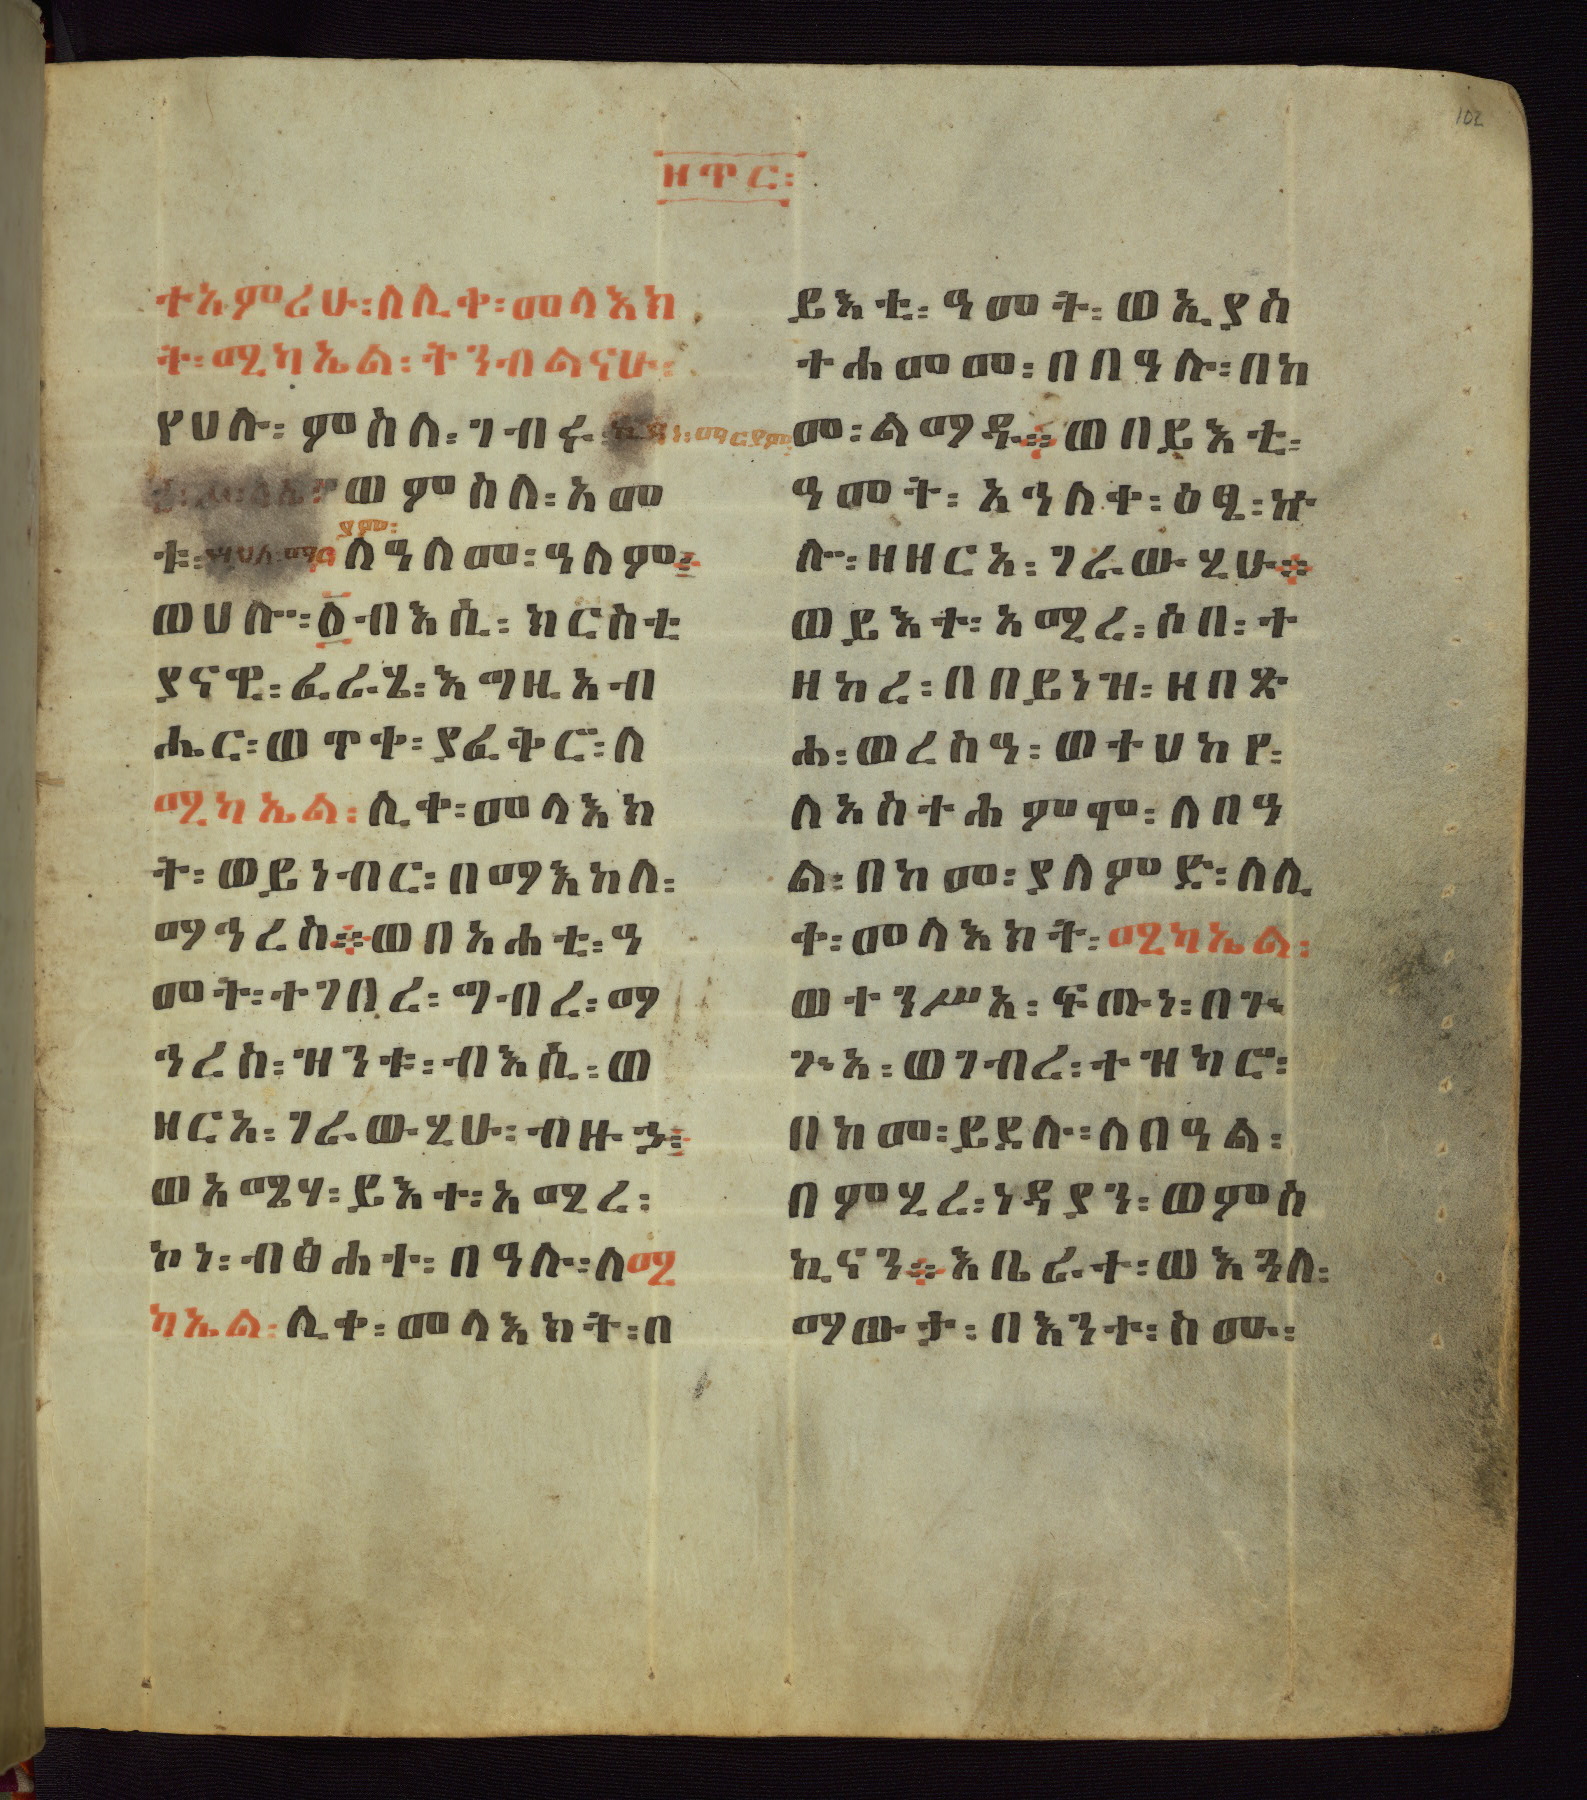 102
ዘጥር፡
ተአምሪሁ፡ለሊቀ፡መላእክ
ት፡ሚካኤል፡ትንብልናሁ፡
የሀሉ፡ምስለ፡ገብሩ፡
ወምስለ፡አመ
ቱ፡
ያም፡
ለዓለመ፡ዓለም።
ወሀሎ፡፩ብእሲ፡ክርስቲ
ያናዊ፡ፈራሄ፡እግዚአብ
ሔር፡ወጥቀ፡ያፈቅሮ፡ለ
ሚካኤል፡ሊቀ፡መላእክ
ት፡ወይነብር፡በማእከለ፡
ማኅረስ፨ወበአሐቲ፡ዓ
መት፡ተገብረ፡ግብረ፡ማ
ኅረስ፡ዝንቱ፡ብእሲ፡ወ
ዘርአ፡ገራውሂሁ፡ብዙኃ፨
ወአሜሃ፡ይእተ፡አሚረ፡
ኮነ፡ብፅሐተ፡በዓሉ፡ለሚ
ካኤል፡ሊቀ፡መላእክት፡በ
ይእቲ፡ዓመት፡ወኢያስ
ተሐመመ፡በበዓሉ፡በከ
መ፡ልማዱ፨ወበይእቲ፡
ዓመት፡አኅለቀ፡ዕፄ፡ኵ
ሎ፡ዘዘርአ፡ገራውሂሁ፨
ወይእተ፡አሚረ፡ሶበ፡ተ
ዘከረ፡በበይነዝ፡ዘበጽ
ሐ፡ወረስዓ፡ወተሀከየ፡
ለአስተሐምሞ፡ለበዓ
ል፡በከመ፡ያለምድ፡ለሊ
ቀ፡መላእክት፡ሚካኤል፡
ወተንሥአ፡ፍጡነ፡በጕ
ጕአ፡ወገብረ፡ተዝካሮ፡
በከመ፡ይደሉ፡ለበዓል፡
በምሂረ፡ነዳያን፡ወምስ
ኪናን፨እቤራተ፡ወእጓለ፡
ማውታ፡በእንተ፡ስሙ፡